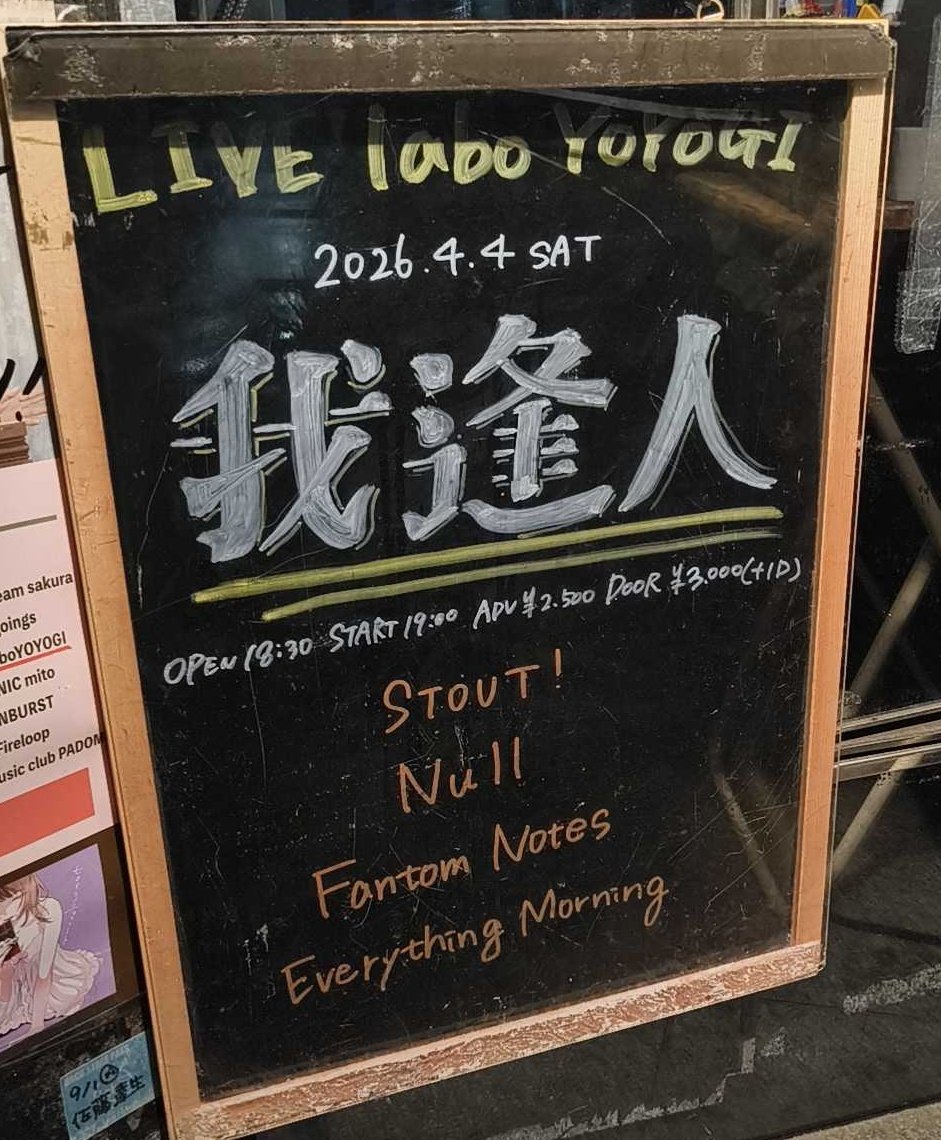 LIVE labo YOYOGI
2026.4.4 SAT
我逢人
OPEN 18:30 START 19:00 ADV ¥2.500 DOOR ¥3.000(+1D)
STOUT!
Null
Fantom Notes
Everything Morning
eam sakura
oings
boYOYOGI
NIC mito
NBURST
Fireloop
usic club PADOM
9/1
佐藤達生